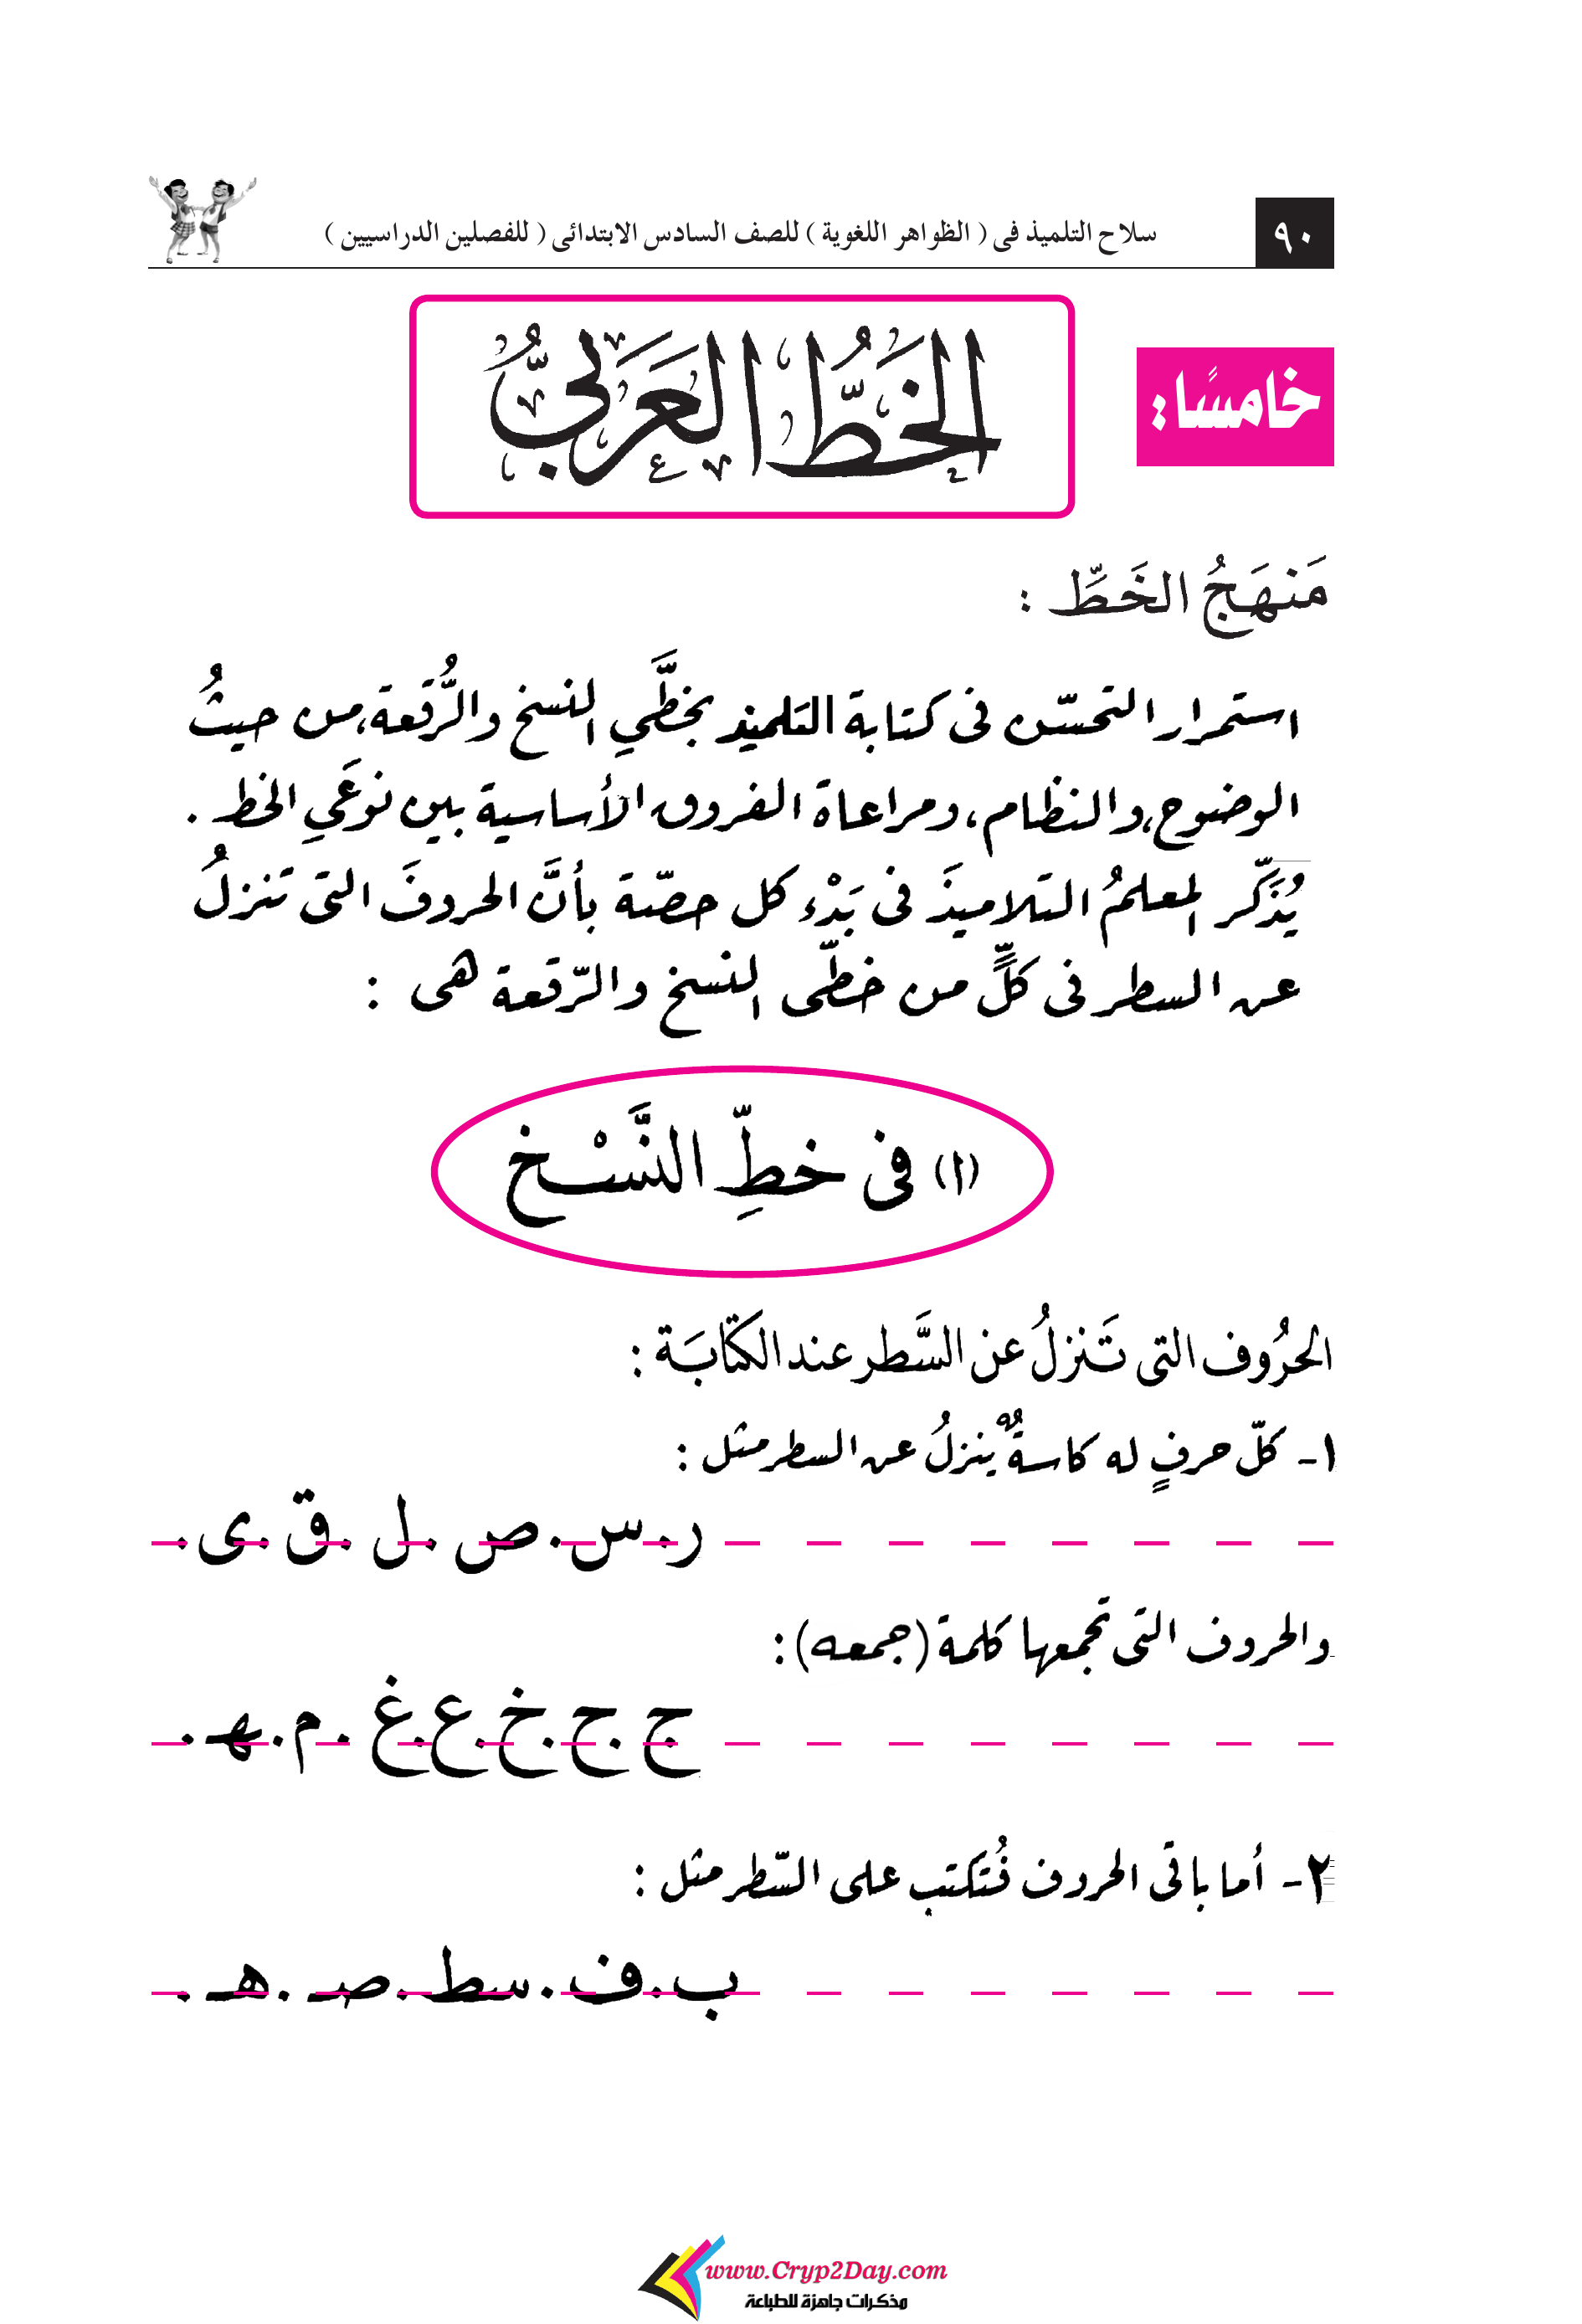 ٩٠
سلاح التلميذ فى ( الظواهر اللغوية ) للصف السادس الابتدائى ( للفصلين الدراسيين )
خامسًا:
الخَطُّ العَرَبِىُّ
مَنهَجُ الخَطِّ :
استمرار التحسّن فى كتابة التلميذ بخطَّيِ النسخ والرُّقعة،من حيثُ
الوضوح،والنظام،ومراعاة الفروق الأساسية بين نوعَيِ الخط .
يُذَكِّر المعلمُ التلاميذَ فى بَدْء كل حصّة بأنَّ الحروفَ التى تنزلُ
عن السطر فى كلٍّ من خطّى النسخ والرّقعة هى :
(١) فى خطِّ النَّسْخ
الحرُوف التى تَنزلُ عن السَّطر عند الكتابَة :
١- كلّ حرفٍ له كاسةٌ ينزلُ عن السطر مثل :
ر . س . ص . ل . ق . ى .
والحروف التى تجمعها كلمة (جمعه) :
ج ح . خ . ع . غ . م . هـ .
٢- أما باقى الحروف فتُكتب على السّطر مثل :
ب . ف . سط . صـ . هـ .
www.Cryp2Day.com
مذكرات جاهزة للطباعة